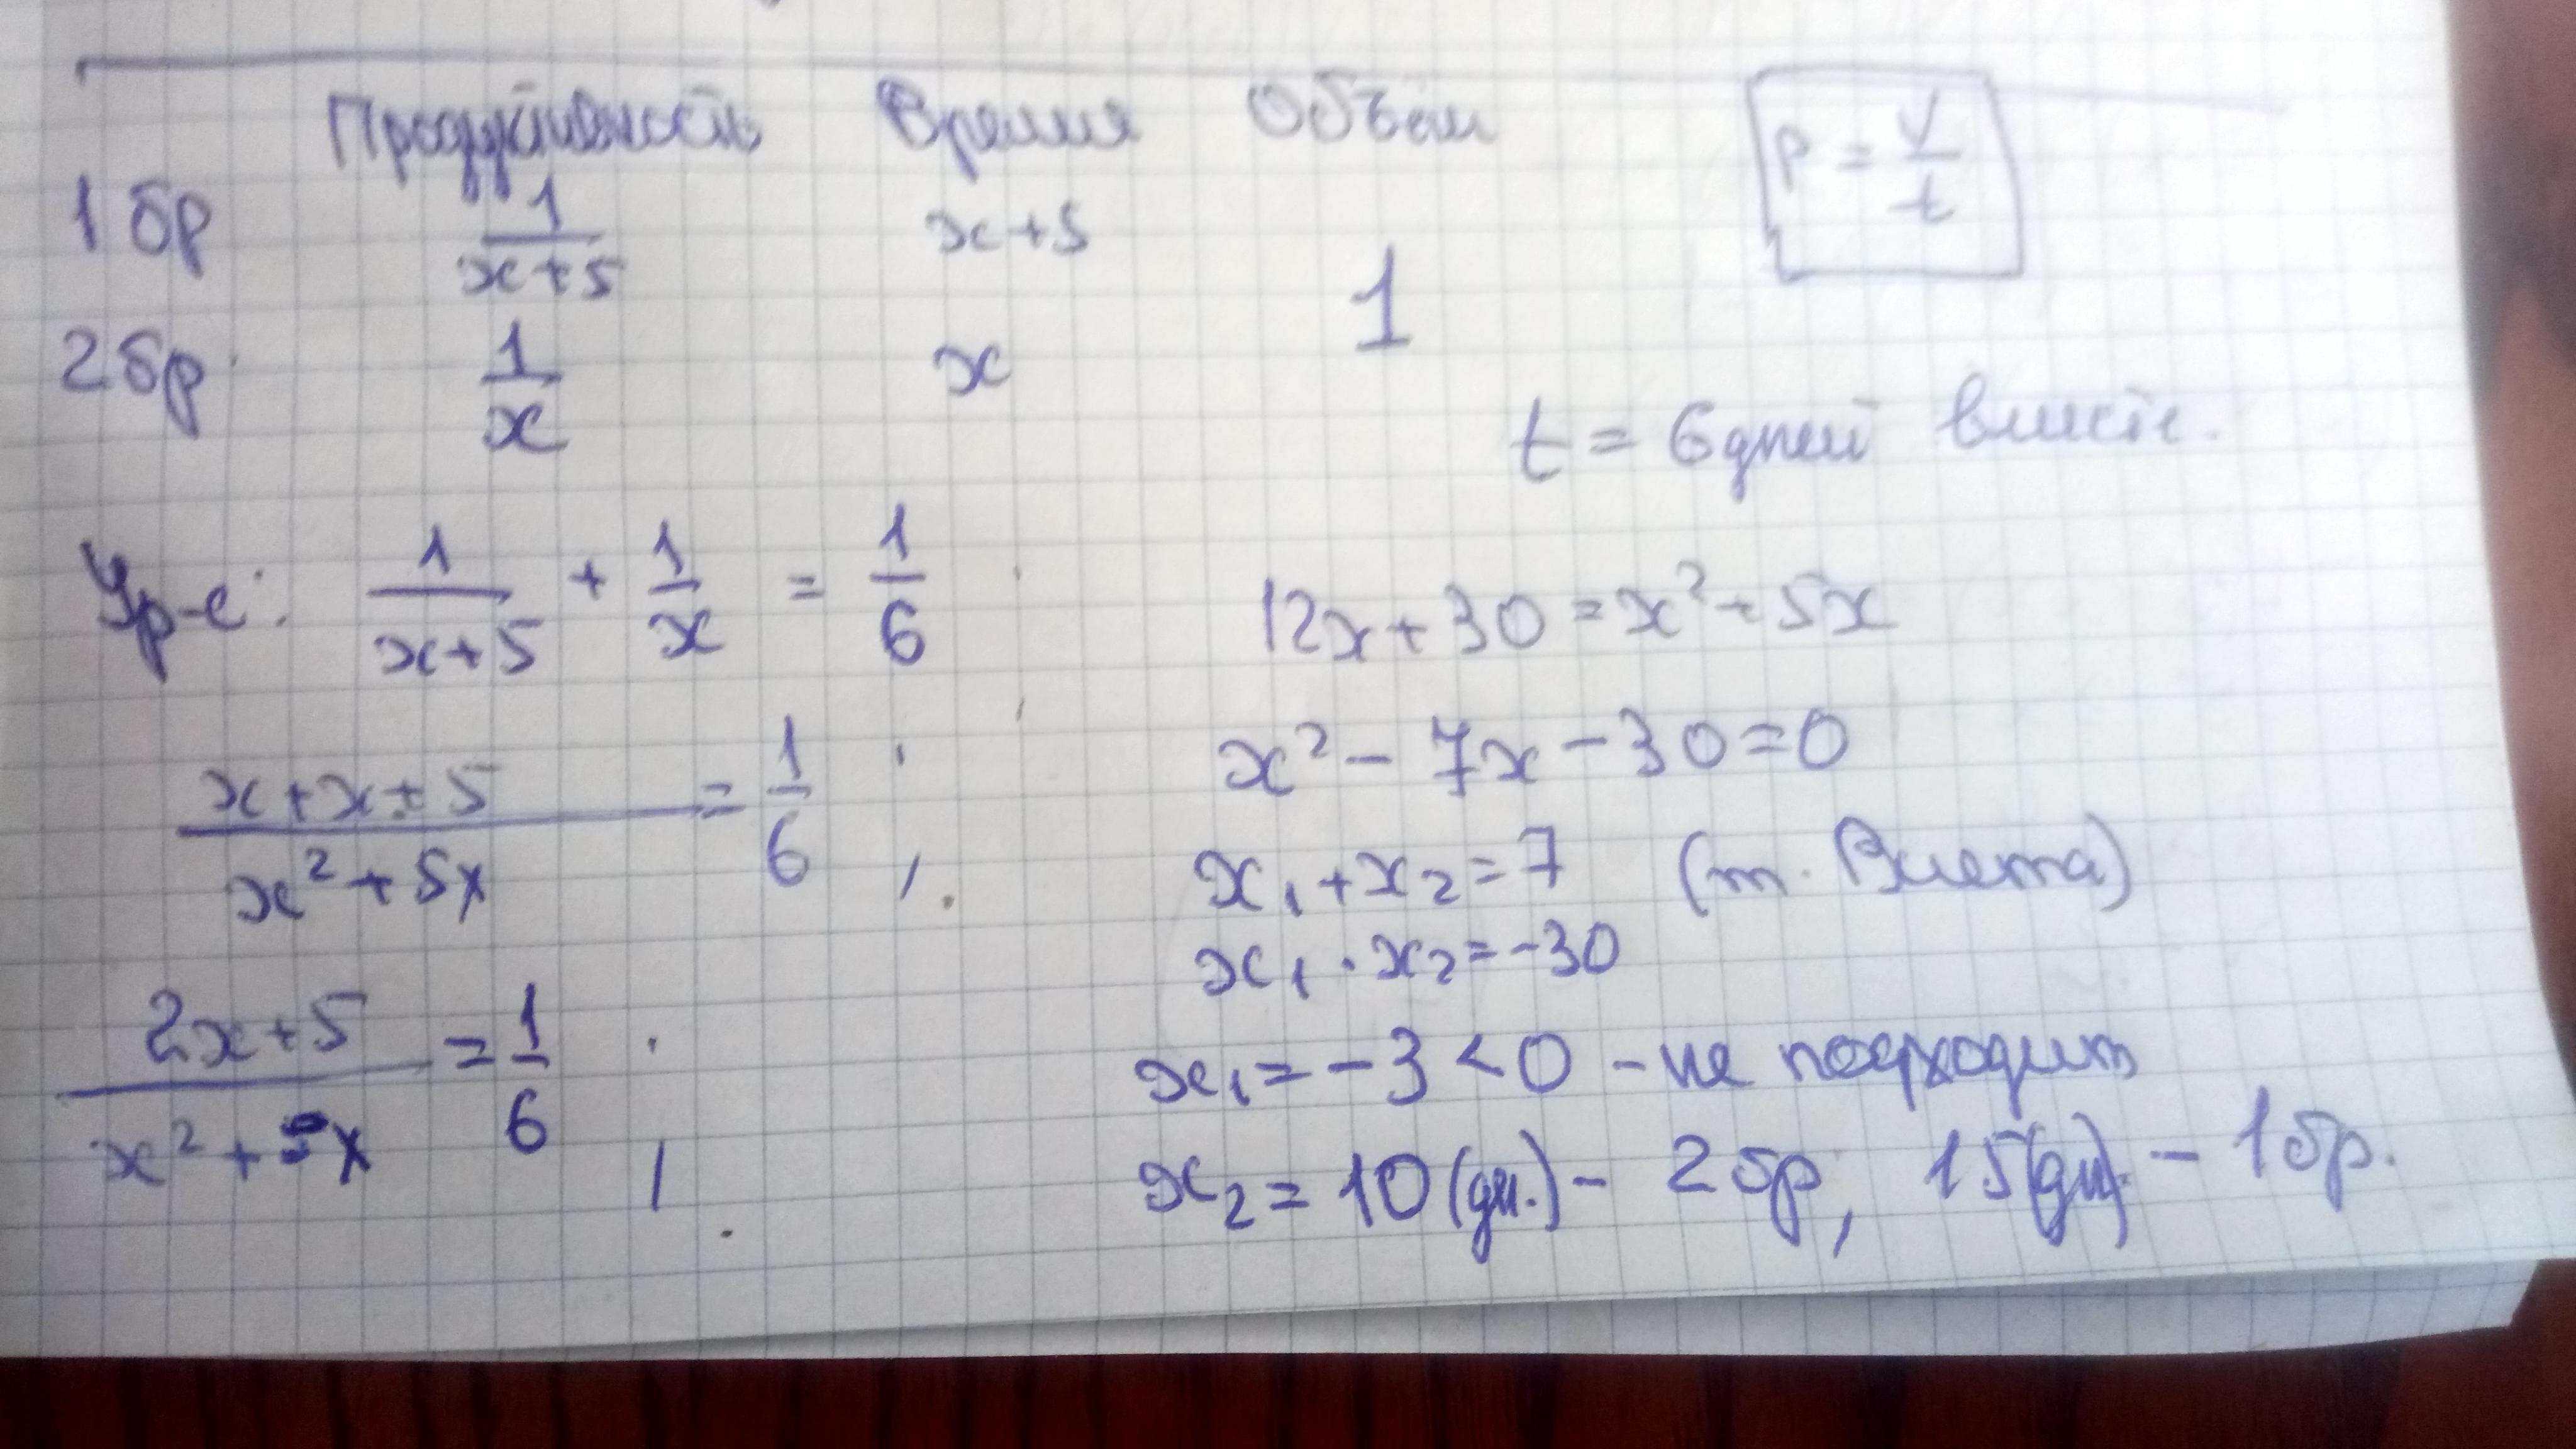 Продуктивность Время Объём
P = V/t
1 бр 1/(x+5) x+5
1
2 бр. 1/x x
t = 6 дней вместе.
Ур-е: 1/(x+5) + 1/x = 1/6 ;
(x+x+5)/(x²+5x) = 1/6 ;
(2x+5)/(x²+5x) = 1/6 ;
12x+30=x²+5x
x²-7x-30=0
x₁+x₂=7 (т. Виета)
x₁·x₂=-30
x₁=-3<0 - не подходит
x₂=10(дн.)- 2 бр, 15(дн.) - 1 бр.